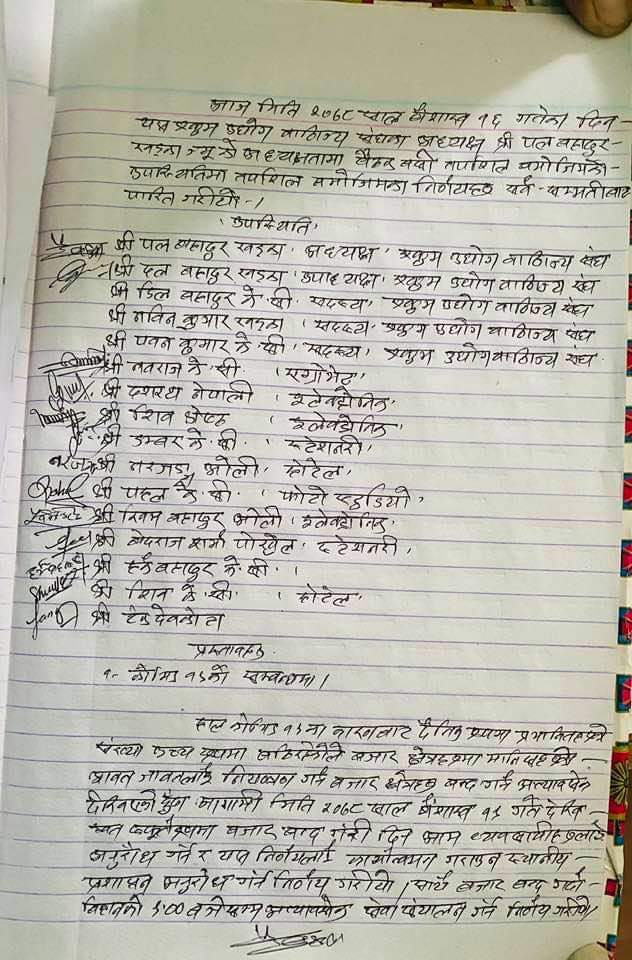 आज मिति २०७८ साल बैशाख १६ गतेका दिन -
यस रुकुम उद्योग वाणिज्य संघका अध्यक्ष श्री पल बहादुर -
खड्का ज्यू को अध्यक्षतामा बैठक बसी तपशिल बमोजिमको
उपस्थितिमा तपशिल बमोजिमका निर्णयहरु सर्व - सम्मतीबाट
पारित गरीयो -।
उपस्थिति,
श्री पल बहादुर खड्का, अध्यक्ष, रुकुम उद्योग वाणिज्य संघ
श्री दल बहादुर खड्का, उपाध्यक्ष, रुकुम उद्योग वाणिज्य संघ
श्री डिल बहादुर के. सी. सदस्य, रुकुम उद्योग वाणिज्य संघ
श्री नविन कुमार खड्का, सदस्य, रुकुम उद्योग वाणिज्य संघ
श्री पवन कुमार के. सी. सदस्य, रुकुम उद्योग वाणिज्य संघ
श्री नवराज के. सी. , एग्रोभेट,
श्री दशरथ नेपाली , इलेक्ट्रोनिक,
श्री शिव श्रेष्ठ , इलेक्ट्रोनिक,
श्री डम्बर के. सी. , स्टेशनरी,
श्री नरजङ्ग ओली, होटेल,
श्री पहल के. सी. , फोटो स्टुडियो,
श्री खिम बहादुर ओली, इलेक्ट्रोनिक,
श्री वेदराज शर्मा पोख्रेल, स्टेशनरी,
श्री हर्क बहादुर के. सी. ,
श्री शिव के. सी. , होटेल,
श्री टेक देवकोटा
प्रस्तावहरु
१- कोभिड १९ को सम्बन्धमा।
हाल कोभिड १९ का कारणबाट दैनिक रुपमा प्रभावित हुने
संख्या उच्च रुपमा बजार क्षेत्रहरुमा मानिसहरुको
आवत जावतलाई नियन्त्रण गर्न बजार क्षेत्रहरु बन्द गर्न अत्यावश्यक
देखिएको हुँदा आगामी मिति २०७८ साल बैशाख गते देखि
रुपमा बजार बन्द गरी दिन आम व्यवसायीहरुलाई
अनुरोध गर्ने र यस निर्णयलाई कार्यान्वयन गराउन स्थानीय -
प्रशासन अनुरोध गर्ने निर्णय गरीयो। साथै बजार बन्द गर्दा -
विहानको बजे सम्म अत्यावश्यक सेवा संचालन गर्ने निर्णय गरीयो।